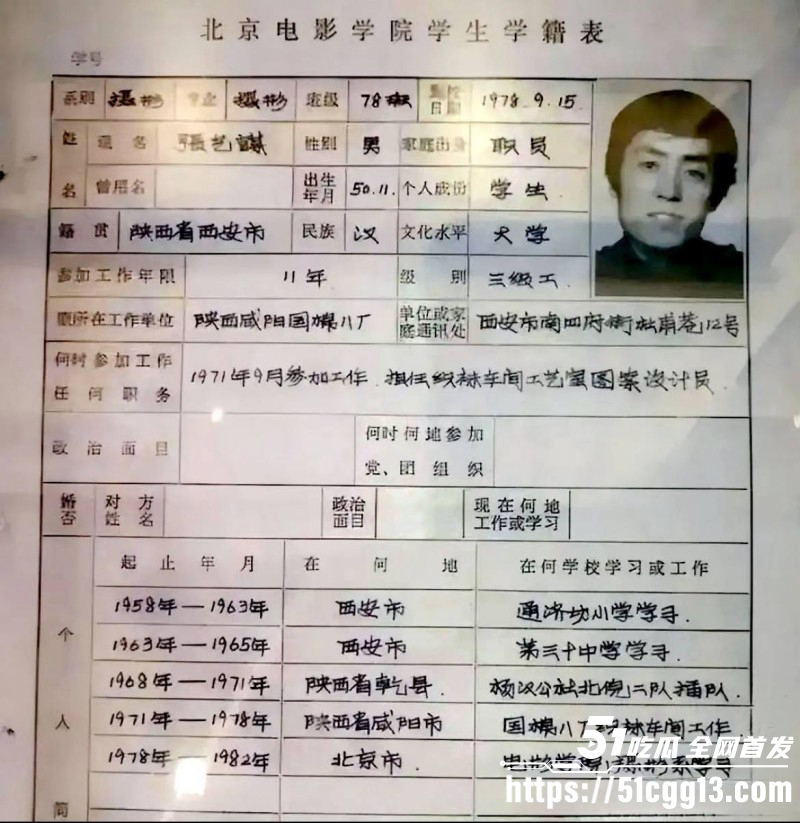 北京电影学院学生学籍表
学号
系别 摄影 专业 摄影 班级 78班 日期 1978.9.15.
姓名 名 張艺謀 性别 男 家庭出身 职员
曾用名 出生年月 50.11. 个人成份 学生
籍贯 陕西省西安市 民族 汉 文化水平 大学
参加工作年限 11年 级别 三级工
原所在工作单位 陕西咸阳国棉八厂 单位或家庭通讯处 西安市南四府街杜甫巷12号
何时参加工作
任何职务 1971年9月参加工作.担任织袜车间工艺室图案设计员.
政治面目 何时何地参加
党、团组织
婚否 对方姓名 政治面目 现在何地
工作或学习
起止年月 在何地 在何学校学习或工作
1958年—1963年 西安市 通济坊小学学习.
1963年—1965年 西安市 第三十中学学习.
1968年—1971年 陕西省乾县. 杨汉公社北倪二队插队.
1971年—1978年 陕西省咸阳市 国棉八厂织袜车间工作
1978年—1982年 北京市. 电影学院摄影系学习
个人简
51吃瓜 全网首发
https://51cgg13.com